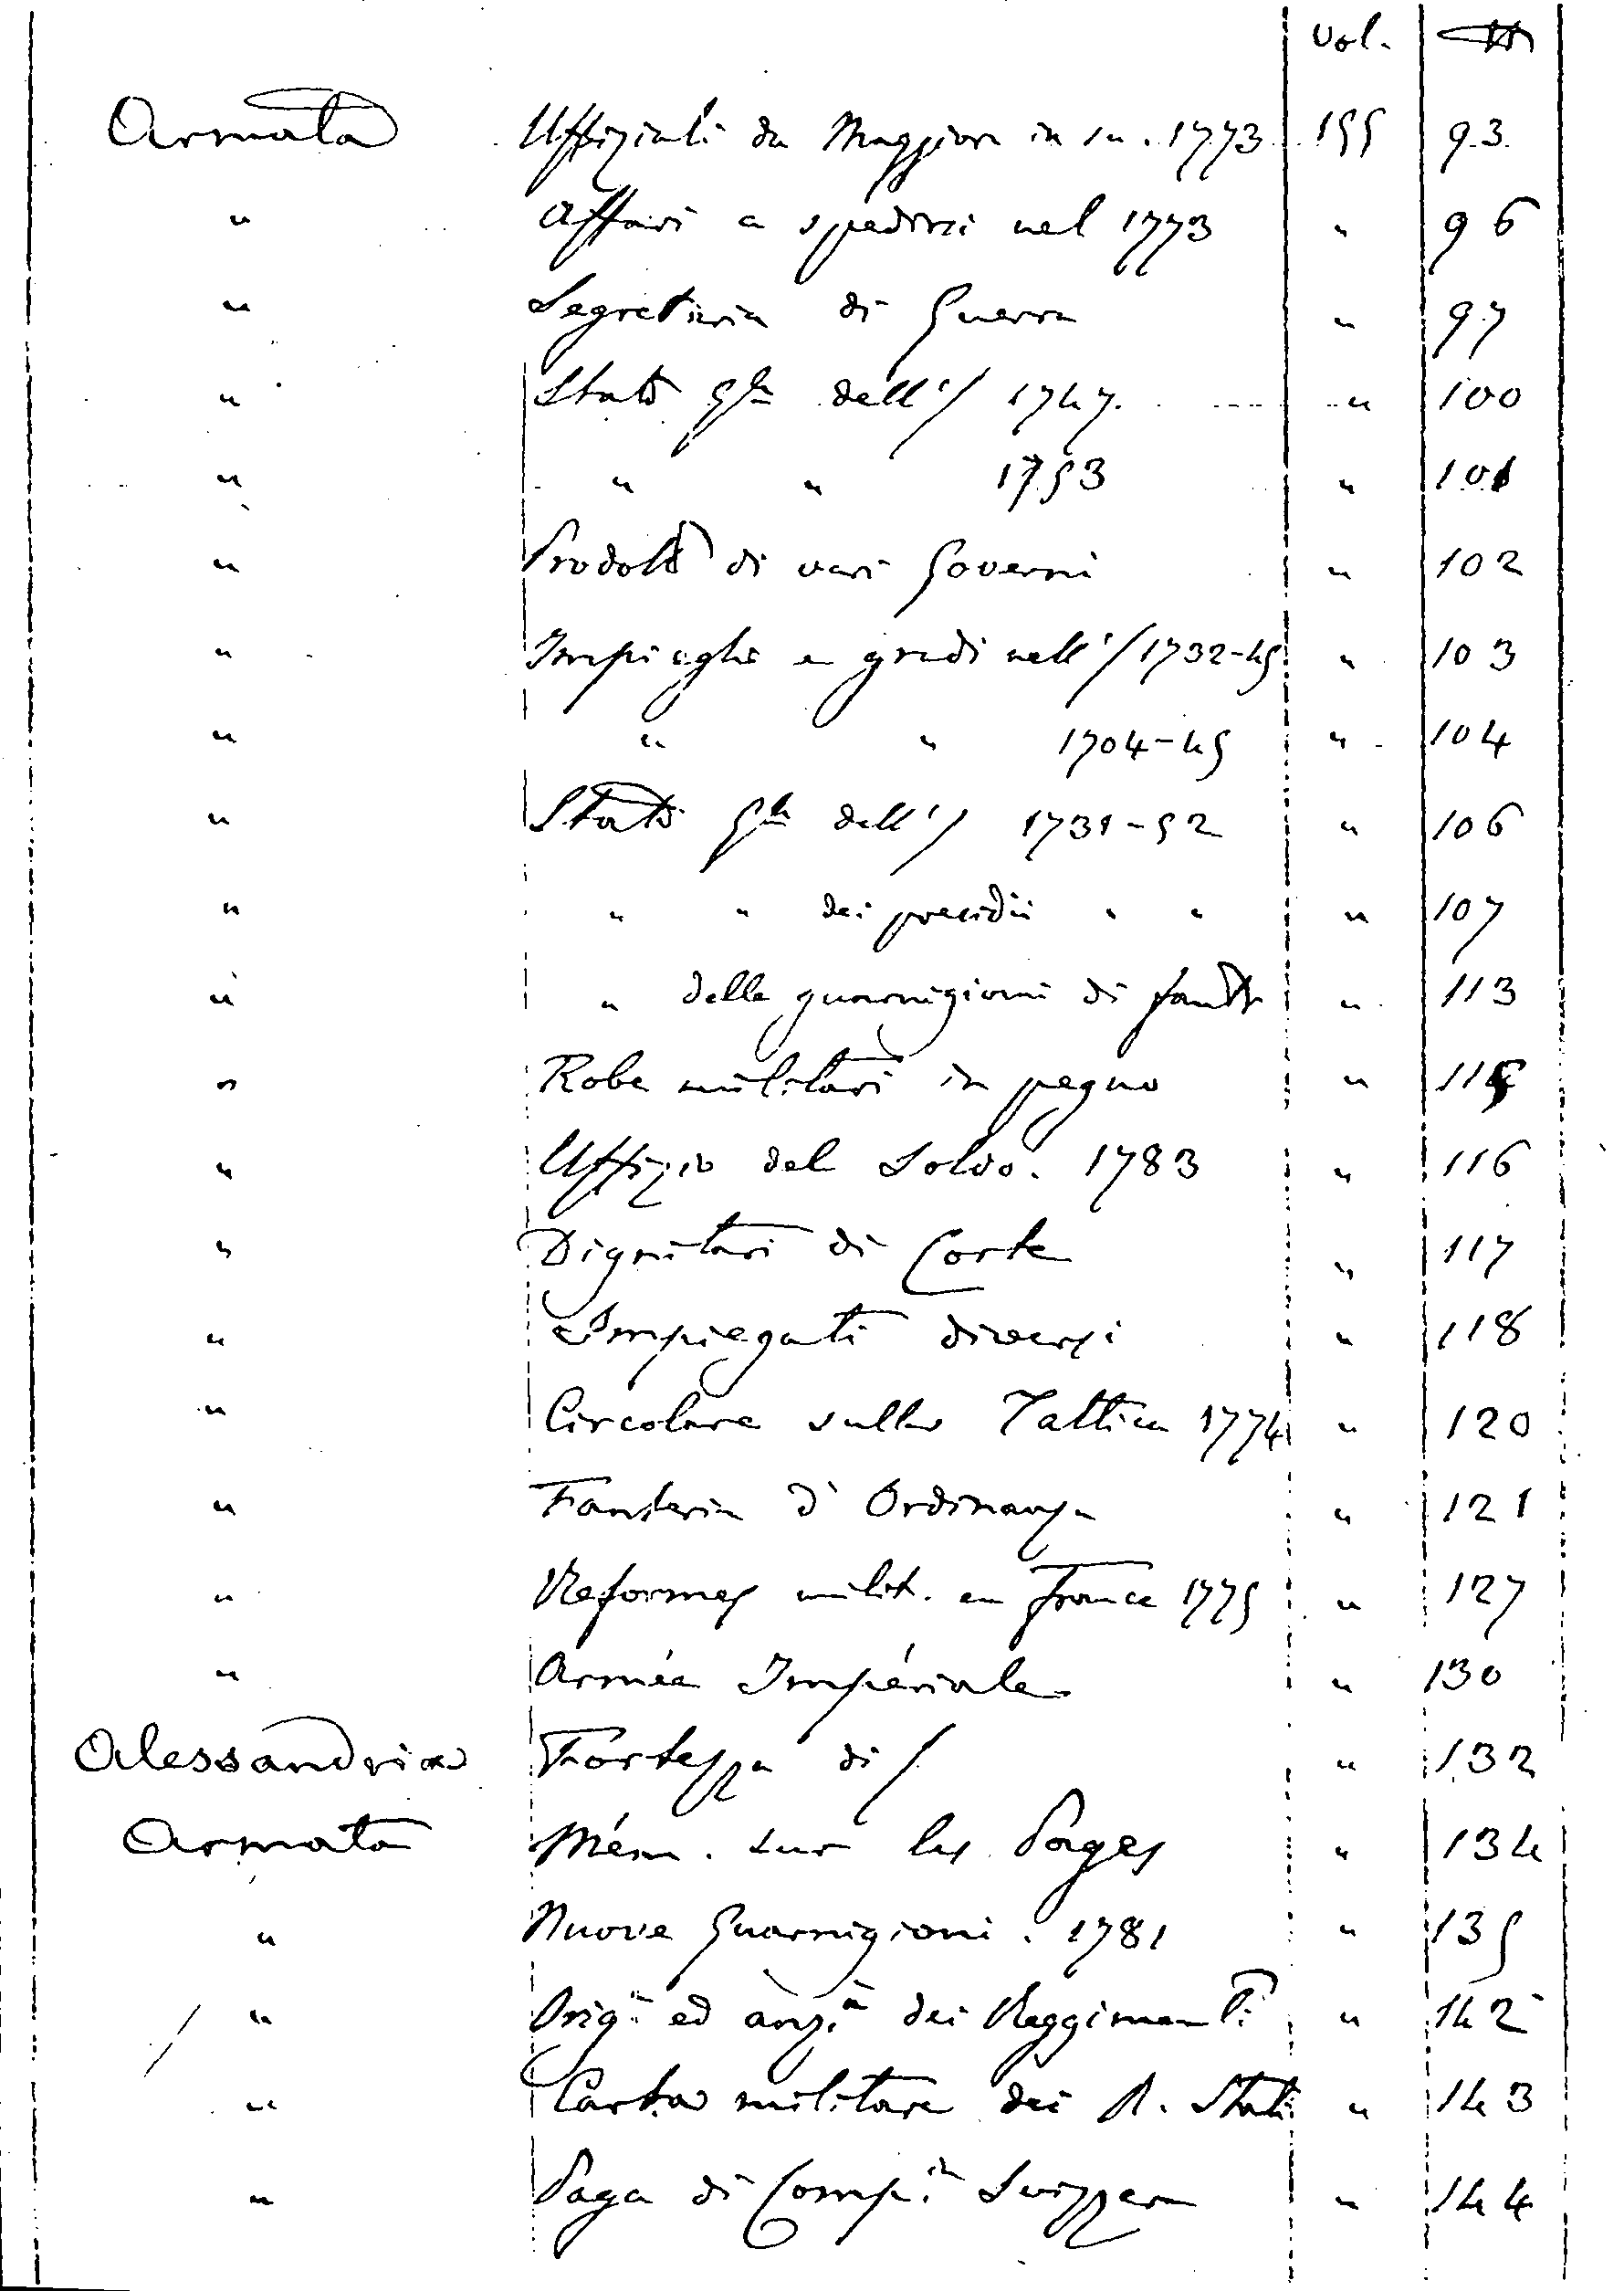 Vol.
Armata Uffiziali da Maggiore in su. 1773 155 93
" Affari a spedirsi nel 1773 " 96
" Segreteria di Guerra " 97
" Stato Gle dell'/ 1747. " 100
" " " 1753 " 101
" Prodotto di vari Governi " 102
" Impieghi e gradi nell'/ 1732-45 " 103
" " " 1704-45 " 104
" Stato Gle dell'/ 1731-52 " 106
" " " dei presidii " " " 107
" " delle guarnigioni di fantr " 113
" Robe militari in pegno " 115
" Uffizio del Soldo. 1783 " 116
" Dignitari di Corte " 117
" Impiegati diversi " 118
" Circolare sulla Tattica 1774 " 120
" Fanteria d'Ordinanza " 121
" Reformes milit. en France 1775 " 127
" Armée Impériale " 130
Alessandria Fortezza di / " 132
Armata Mém. sur les Pages " 134
" Nuove Guarnigioni. 1781 " 135
" Orige ed anzà dei Reggimenti " 142
" Carta militare dei R. Stati " 143
" Paga di Compie Svizzere " 144